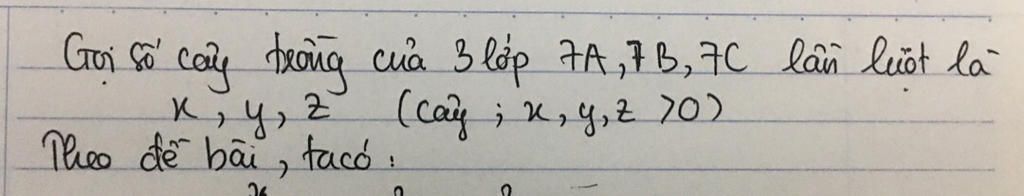 Gọi số cây trồng của 3 lớp 7A, 7B, 7C lần lượt là
x, y, z (cây ; x, y, z >0)
Theo đề bài, ta có: